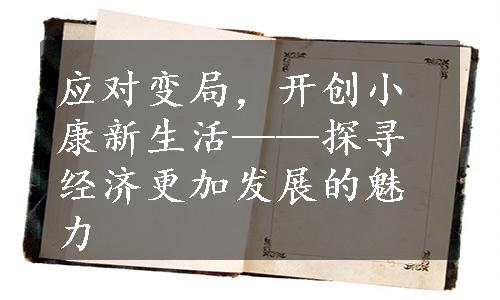 应对变局，开创小
康新生活——探寻
经济更加发展的魅
力